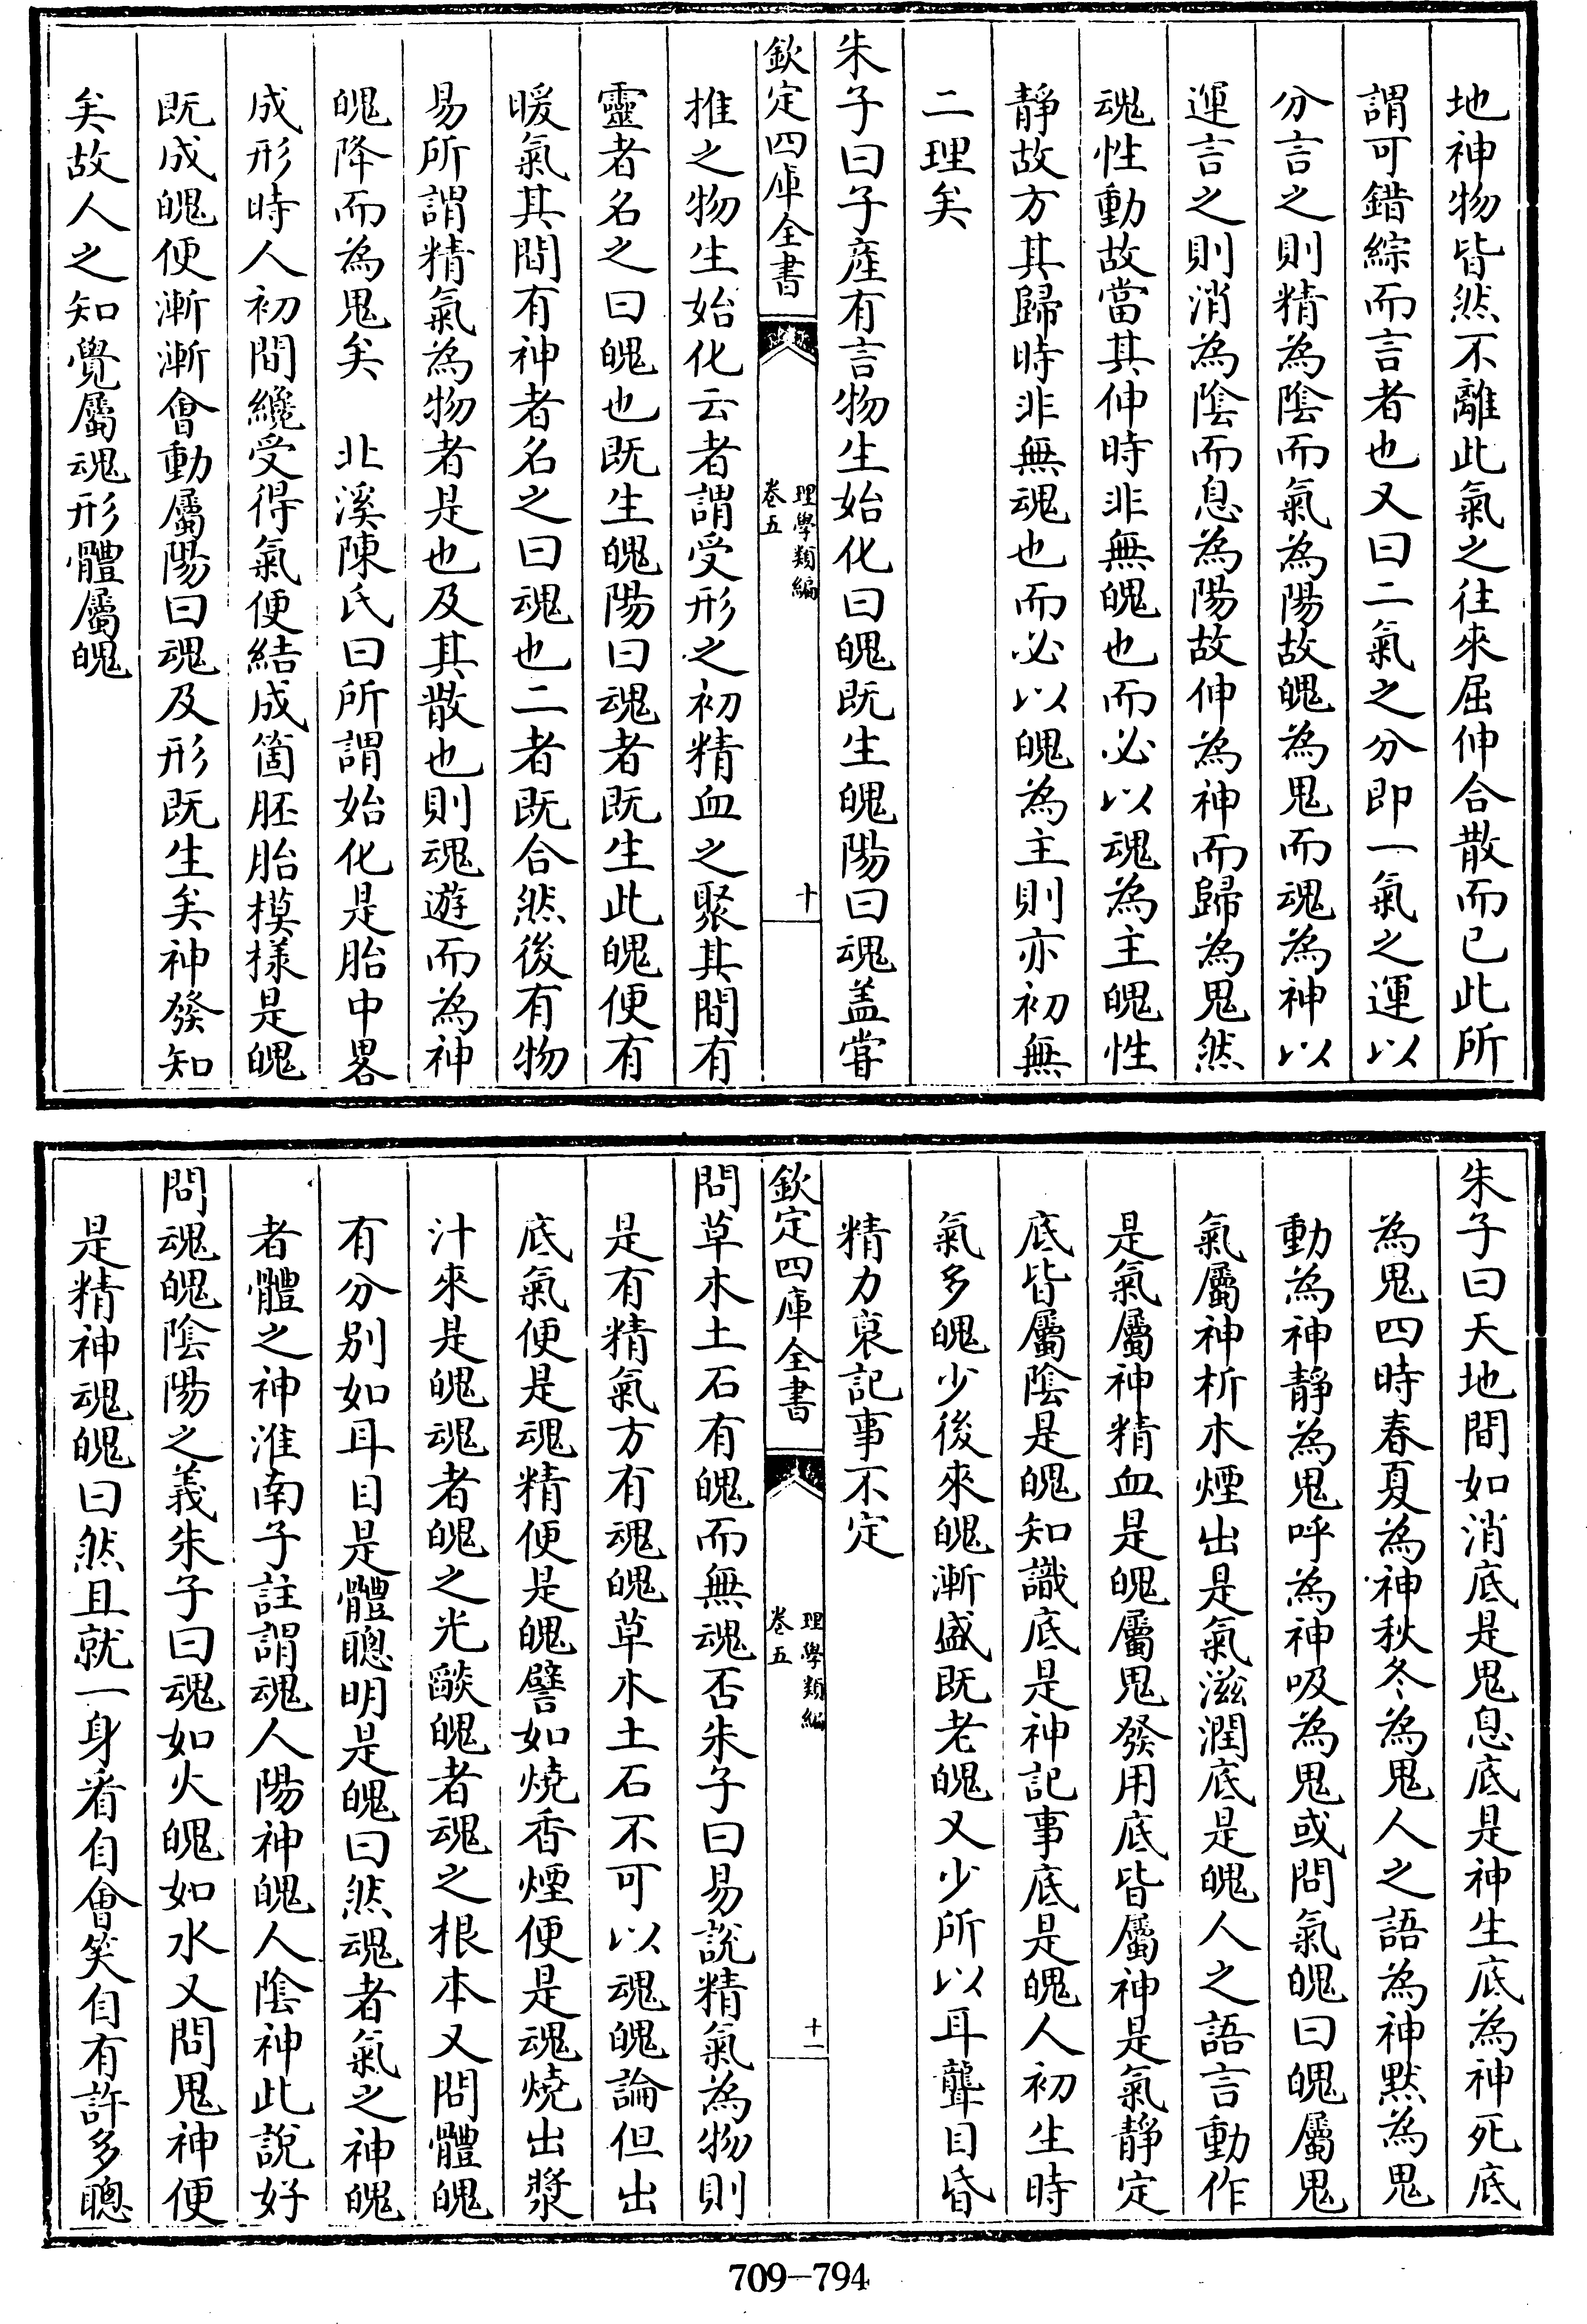 地神物皆然不離此氣之往來屈伸合散而已此所
謂可錯綜而言者也又曰二氣之分即一氣之運以
分言之則精為隂而氣為陽故魄為鬼而魂為神以
運言之則消為隂而息為陽故伸為神而歸為鬼然
魂性動故當其伸時非無魄也而必以魂為主魄性
靜故方其歸時非無魂也而必以魄為主則亦初無
二理矣
朱子曰子産有言物生始化曰魄既生魄陽曰魂盖甞
欽定四庫全書
理學類編
卷五
十
推之物生始化云者謂受形之初精血之聚其間有
靈者名之曰魄也既生魄陽曰魂者既生此魄便有
暖氣其間有神者名之曰魂也二者既合然後有物
易所謂精氣為物者是也及其散也則魂遊而為神
魄降而為鬼矣　北溪陳氏曰所謂始化是胎中畧
成形時人初間纔受得氣便結成箇胚胎模樣是魄
既成魄便漸漸會動屬陽曰魂及形既生矣神發知
矣故人之知覺屬魂形體屬魄
朱子曰天地間如消底是鬼息底是神生底為神死底
為鬼四時春夏為神秋冬為鬼人之語為神黙為鬼
動為神靜為鬼呼為神吸為鬼或問氣魄曰魄屬鬼
氣屬神析木煙出是氣滋潤底是魄人之語言動作
是氣屬神精血是魄屬鬼發用底皆屬神是氣靜定
底皆屬隂是魄知識底是神記事底是魄人初生時
氣多魄少後來魄漸盛既老魄又少所以耳聾目昏
精力衰記事不定
欽定四庫全書
理學類編
卷五
十一
問草木土石有魄而無魂否朱子曰易說精氣為物則
是有精氣方有魂魄草木土石不可以魂魄論但出
底氣便是魂精便是魄譬如燒香煙便是魂燒出漿
汁來是魄魂者魄之光燄魄者魂之根本又問體魄
有分別如耳目是體聰明是魄曰然魂者氣之神魄
者體之神淮南子註謂魂人陽神魄人陰神此說好
問魂魄隂陽之義朱子曰魂如火魄如水又問鬼神便
是精神魂魄曰然且就一身看自會笑自有許多聰
709—794